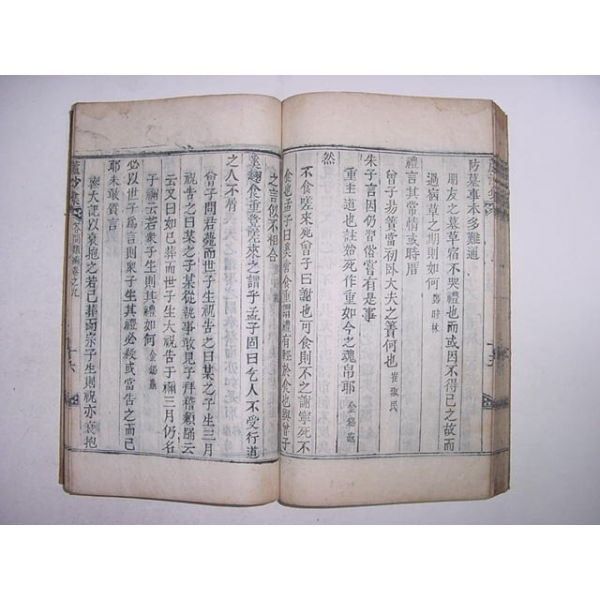 防墓事本多難道
朋友之墓草宿不哭禮也而或因不得已之故而
過宿草之期則如何 鄭時林
禮言其常情或時厝
曾子易簀當初臥大夫之簀何也 崔琡民
朱子言因仍習俗嘗有是事
重主道也註始死作重如今之魂帛耶 金錫龜
然
不食嗟來死曾子曰謝也可食則不之謝寧死不
食也孟子曰奚啻食重謂禮有輕於食也與曾子
之言似不相合
奚翅食重嗟來之謂乎孟子固曰乞人不受行道
之人不屑
曾子問君薨而世子生祝告之曰某之子生三月
祝告之曰某之子某從執事敢見子拜稽顙踊云
云又曰如已葬而世子生大祝告于禰三月仍名
于禰云若衆子生則其禮如何 金錫龜
必以世子爲言則衆子生其禮必殺或當告之而已
耶未敢質言
喪大記以衰抱之若已葬而宗子生則祝亦衰抱
答問類編卷之九